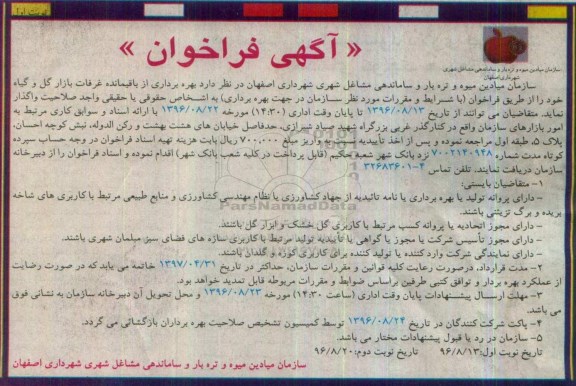 نوبت اول
سازمان میادین میوه و تره بار و ساماندهی مشاغل شهری
شهرداری اصفهان
« آگهی فراخوان »
سازمان میادین میوه و تره بار و ساماندهی مشاغل شهری شهرداری اصفهان در نظر دارد بهره برداری از باقیمانده غرفات بازار گل و گیاه
خود را از طریق فراخوان (با شرایط و مقررات مورد نظر سازمان در جهت بهره برداری) به اشخاص حقوقی یا حقیقی واجد صلاحیت واگذار
نماید. متقاضیان می توانند از تاریخ ۱۳۹۶/۰۸/۱۳ تا پایان وقت اداری (۱۴:۳۰) مورخه ۱۳۹۶/۰۸/۲۲ با ارائه اسناد و سوابق کاری مرتبط به
امور بازارهای سازمان واقع در کنارگذر غربی بزرگراه شهید خرازی، حدفاصل خیابان های هشت بهشت و رکن الدوله، نبش کوچه احسان،
پلاک ۵، طبقه اول مراجعه نموده و پس از اخذ تأییدیه و واریز مبلغ ۷۰۰,۰۰۰ ریال بابت هزینه تهیه اسناد فراخوان در وجه حساب سپرده
کوتاه مدت شماره ۷۰۰۲۱۴۰۹۴۸ نزد بانک شهر شعبه حکیم (قابل پرداخت در کلیه شعب بانک شهر) اقدام نموده و اسناد فراخوان را از دبیرخانه
سازمان دریافت نمایند. تلفن تماس ۴-۳۲۶۸۳۶۰۱
۱- متقاضیان بایستی:
– دارای پروانه تولید یا بهره برداری یا نامه تائیدیه از جهاد کشاورزی یا نظام مهندسی کشاورزی و منابع طبیعی مرتبط با کاربری های شاخه
بریده و برگ تزیینی باشند.
– دارای مجوز اتحادیه یا پروانه کسب مرتبط با کاربری گل خشک و ابزار گل باشند.
– دارای مجوز تأسیس شرکت یا مجوز یا گواهی یا تأییدیه تولید مرتبط با کاربری سازه های فضای سبز مبلمان شهری باشند.
– دارای نمایندگی شرکت وارد کننده یا تولید کننده برای کاربری کوزه و گلدان باشند.
۲- مدت قرارداد، درصورت رعایت کلیه قوانین و مقررات سازمان، حداکثر در تاریخ ۱۳۹۷/۰۴/۳۱ خاتمه می یابد که در صورت رضایت
از عملکرد بهره بردار و توافق کتبی طرفین براساس ضوابط و مقررات مربوطه قابل تمدید خواهد بود.
۳- مهلت ارسال پیشنهادات پایان وقت اداری (ساعت ۱۴:۳۰) مورخه ۱۳۹۶/۰۸/۲۳ و محل تحویل آن دبیرخانه سازمان به نشانی فوق
می باشد.
۴- پاکت شرکت کنندگان در تاریخ ۱۳۹۶/۰۸/۲۴ توسط کمیسیون تشخیص صلاحیت بهره برداران بازگشائی می گردد.
۵- سازمان در رد یا قبول پیشنهادات مختار می باشد.
تاریخ نوبت اول: ۹۶/۸/۱۳ تاریخ نوبت دوم: ۹۶/۸/۲۰
سازمان میادین میوه و تره بار و ساماندهی مشاغل شهری شهرداری اصفهان
ParsNamadData